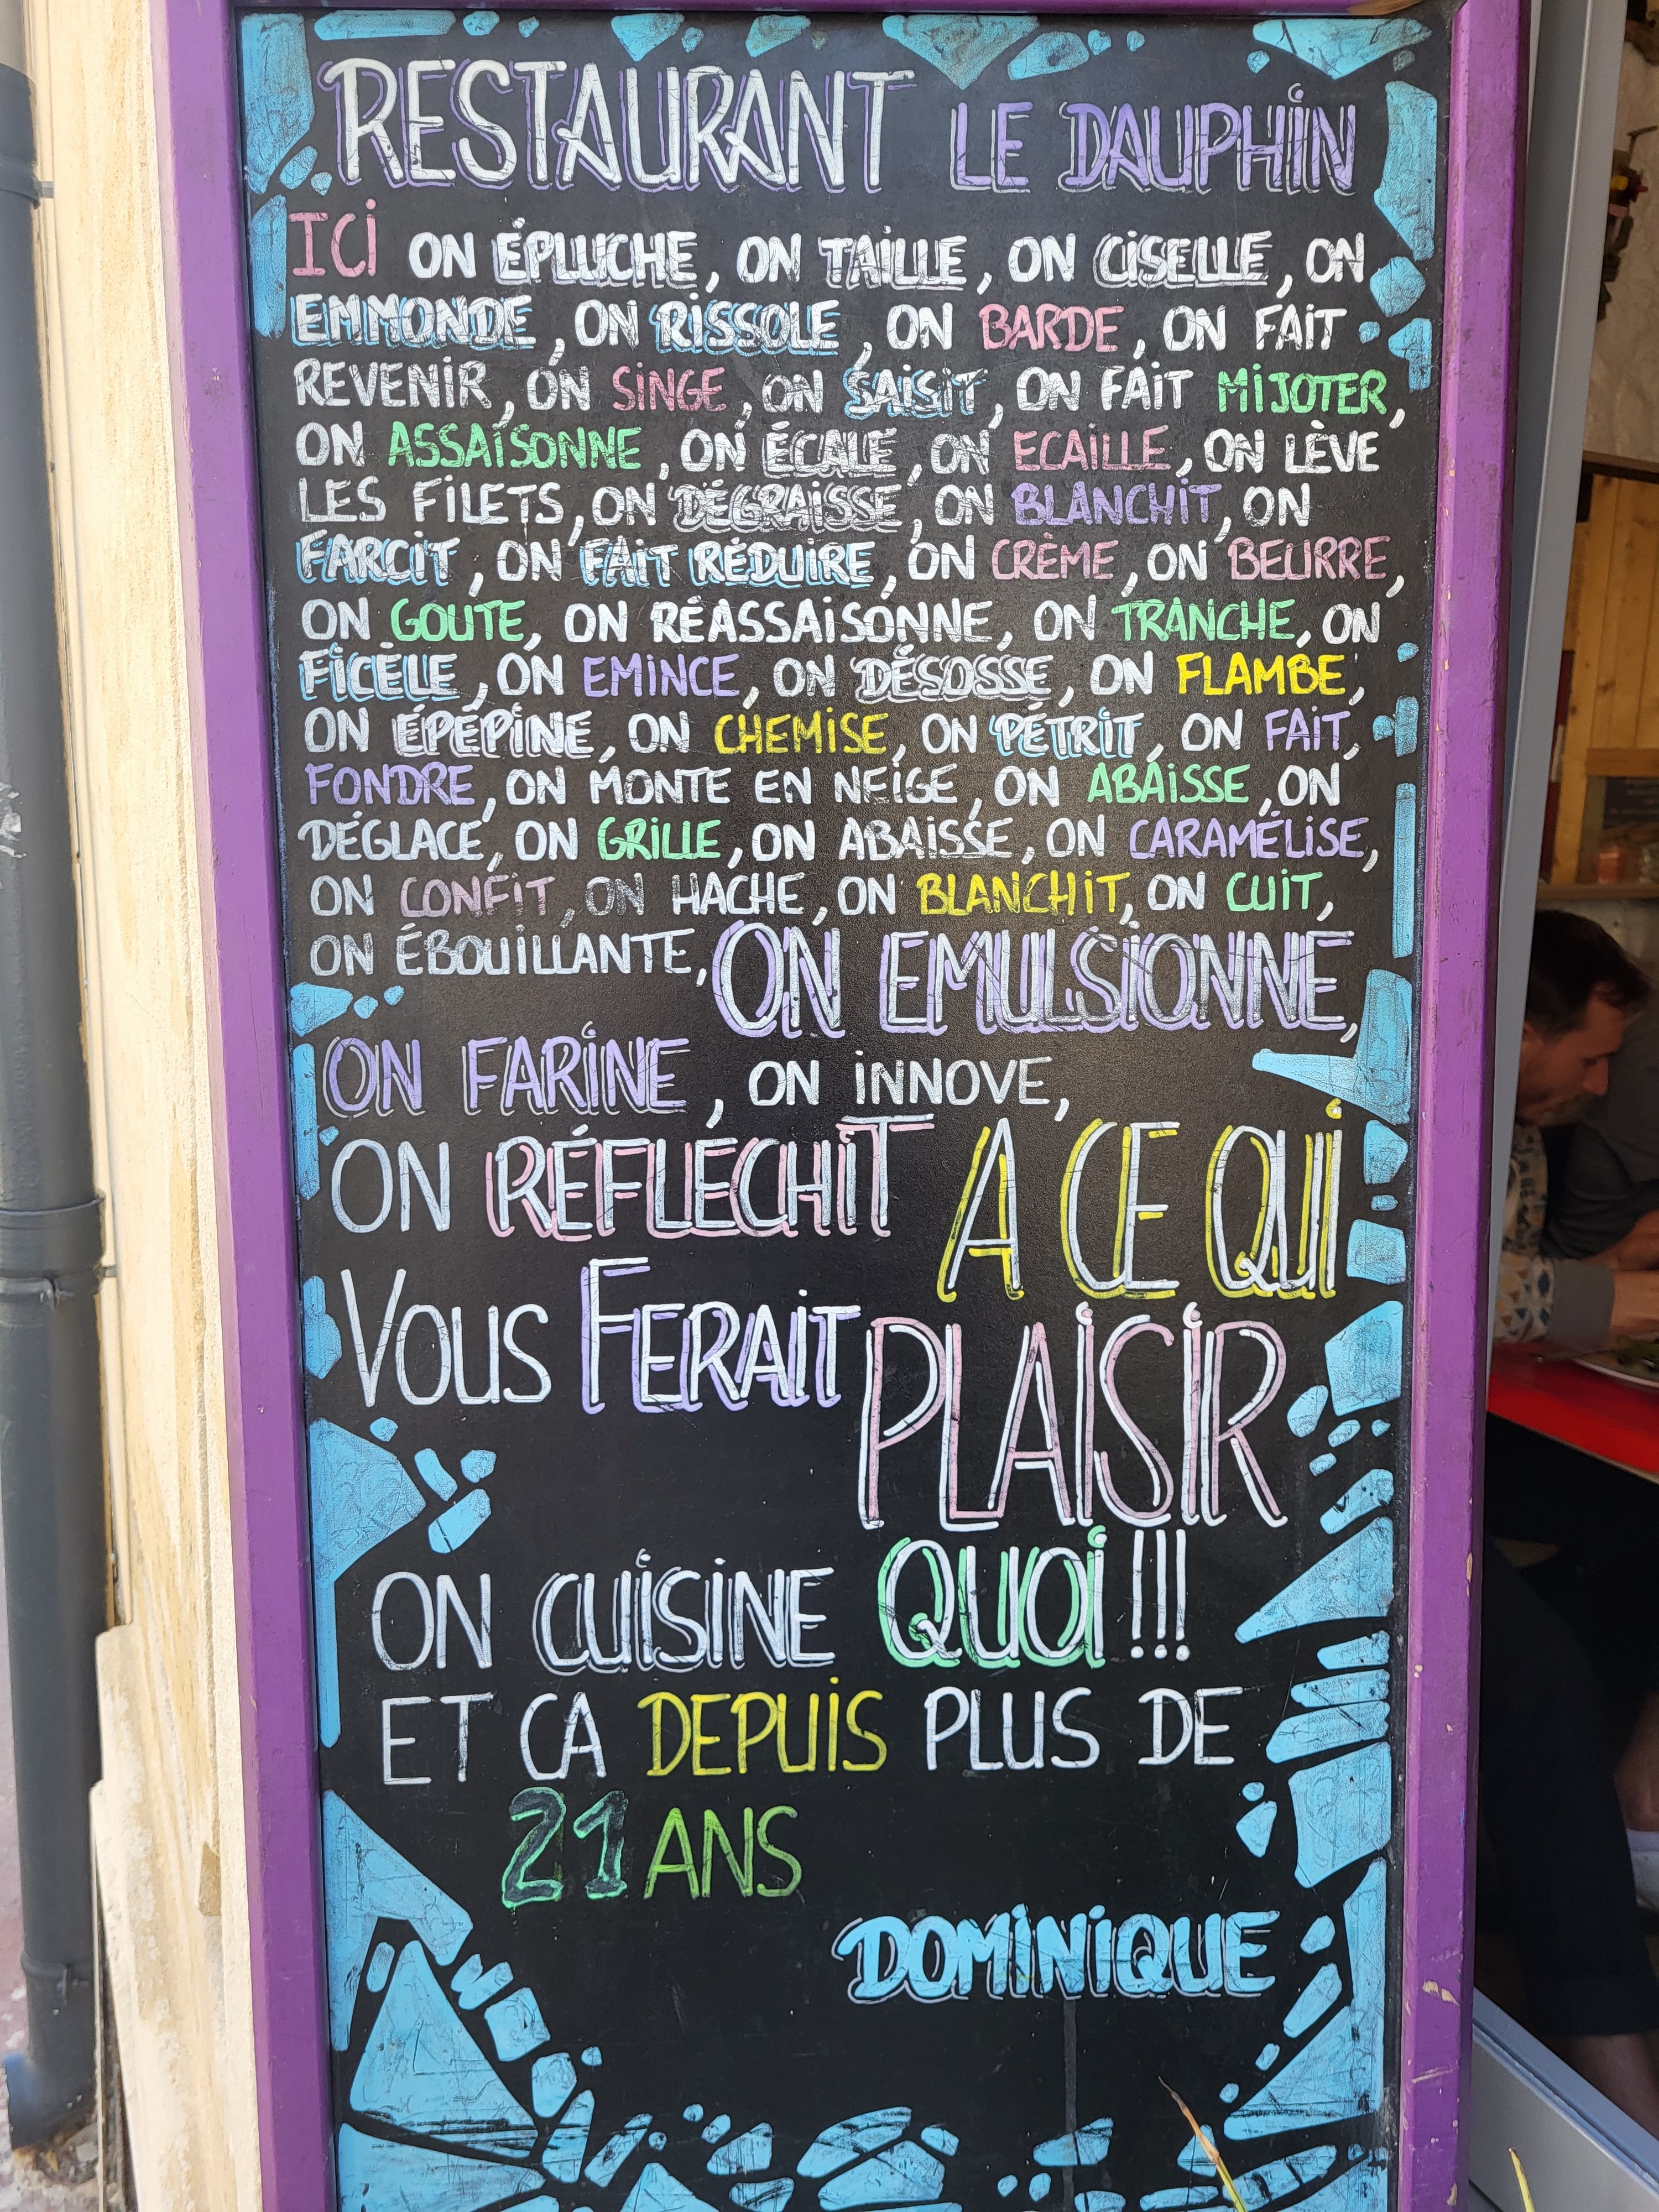 RESTAURANT LE DAUPHIN
ICI ON ÉPLUCHE, ON TAILLE, ON CISELLE, ON
EMMONDE, ON RISSOLE, ON BARDE, ON FAIT
REVENIR, ON SINGE, ON SAISIT, ON FAIT MIJOTER,
ON ASSAISONNE, ON ÉCALE, ON ECAILLE, ON LÈVE
LES FILETS, ON DÉGRAISSE, ON BLANCHIT, ON
FARCIT, ON FAIT RÉDUIRE, ON CRÈME, ON BEURRE,
ON GOUTE, ON RÉASSAISONNE, ON TRANCHE, ON
FICÈLE, ON EMINCE, ON DÉSOSSE, ON FLAMBE,
ON ÉPÉPINE, ON CHEMISE, ON PÉTRIT, ON FAIT,
FONDRE, ON MONTE EN NEIGE, ON ABAISSE, ON
DÉGLACE, ON GRILLE, ON ABAISSE, ON CARAMÉLISE,
ON CONFIT, ON HACHE, ON BLANCHIT, ON CUIT,
ON ÉBOUILLANTE, ON EMULSIONNE,
ON FARINE, ON INNOVE,
ON RÉFLÉCHIT A CE QUI
VOUS FERAIT PLAISIR
ON CUISINE QUOI!!!
ET CA DEPUIS PLUS DE
21 ANS
DOMINIQUE